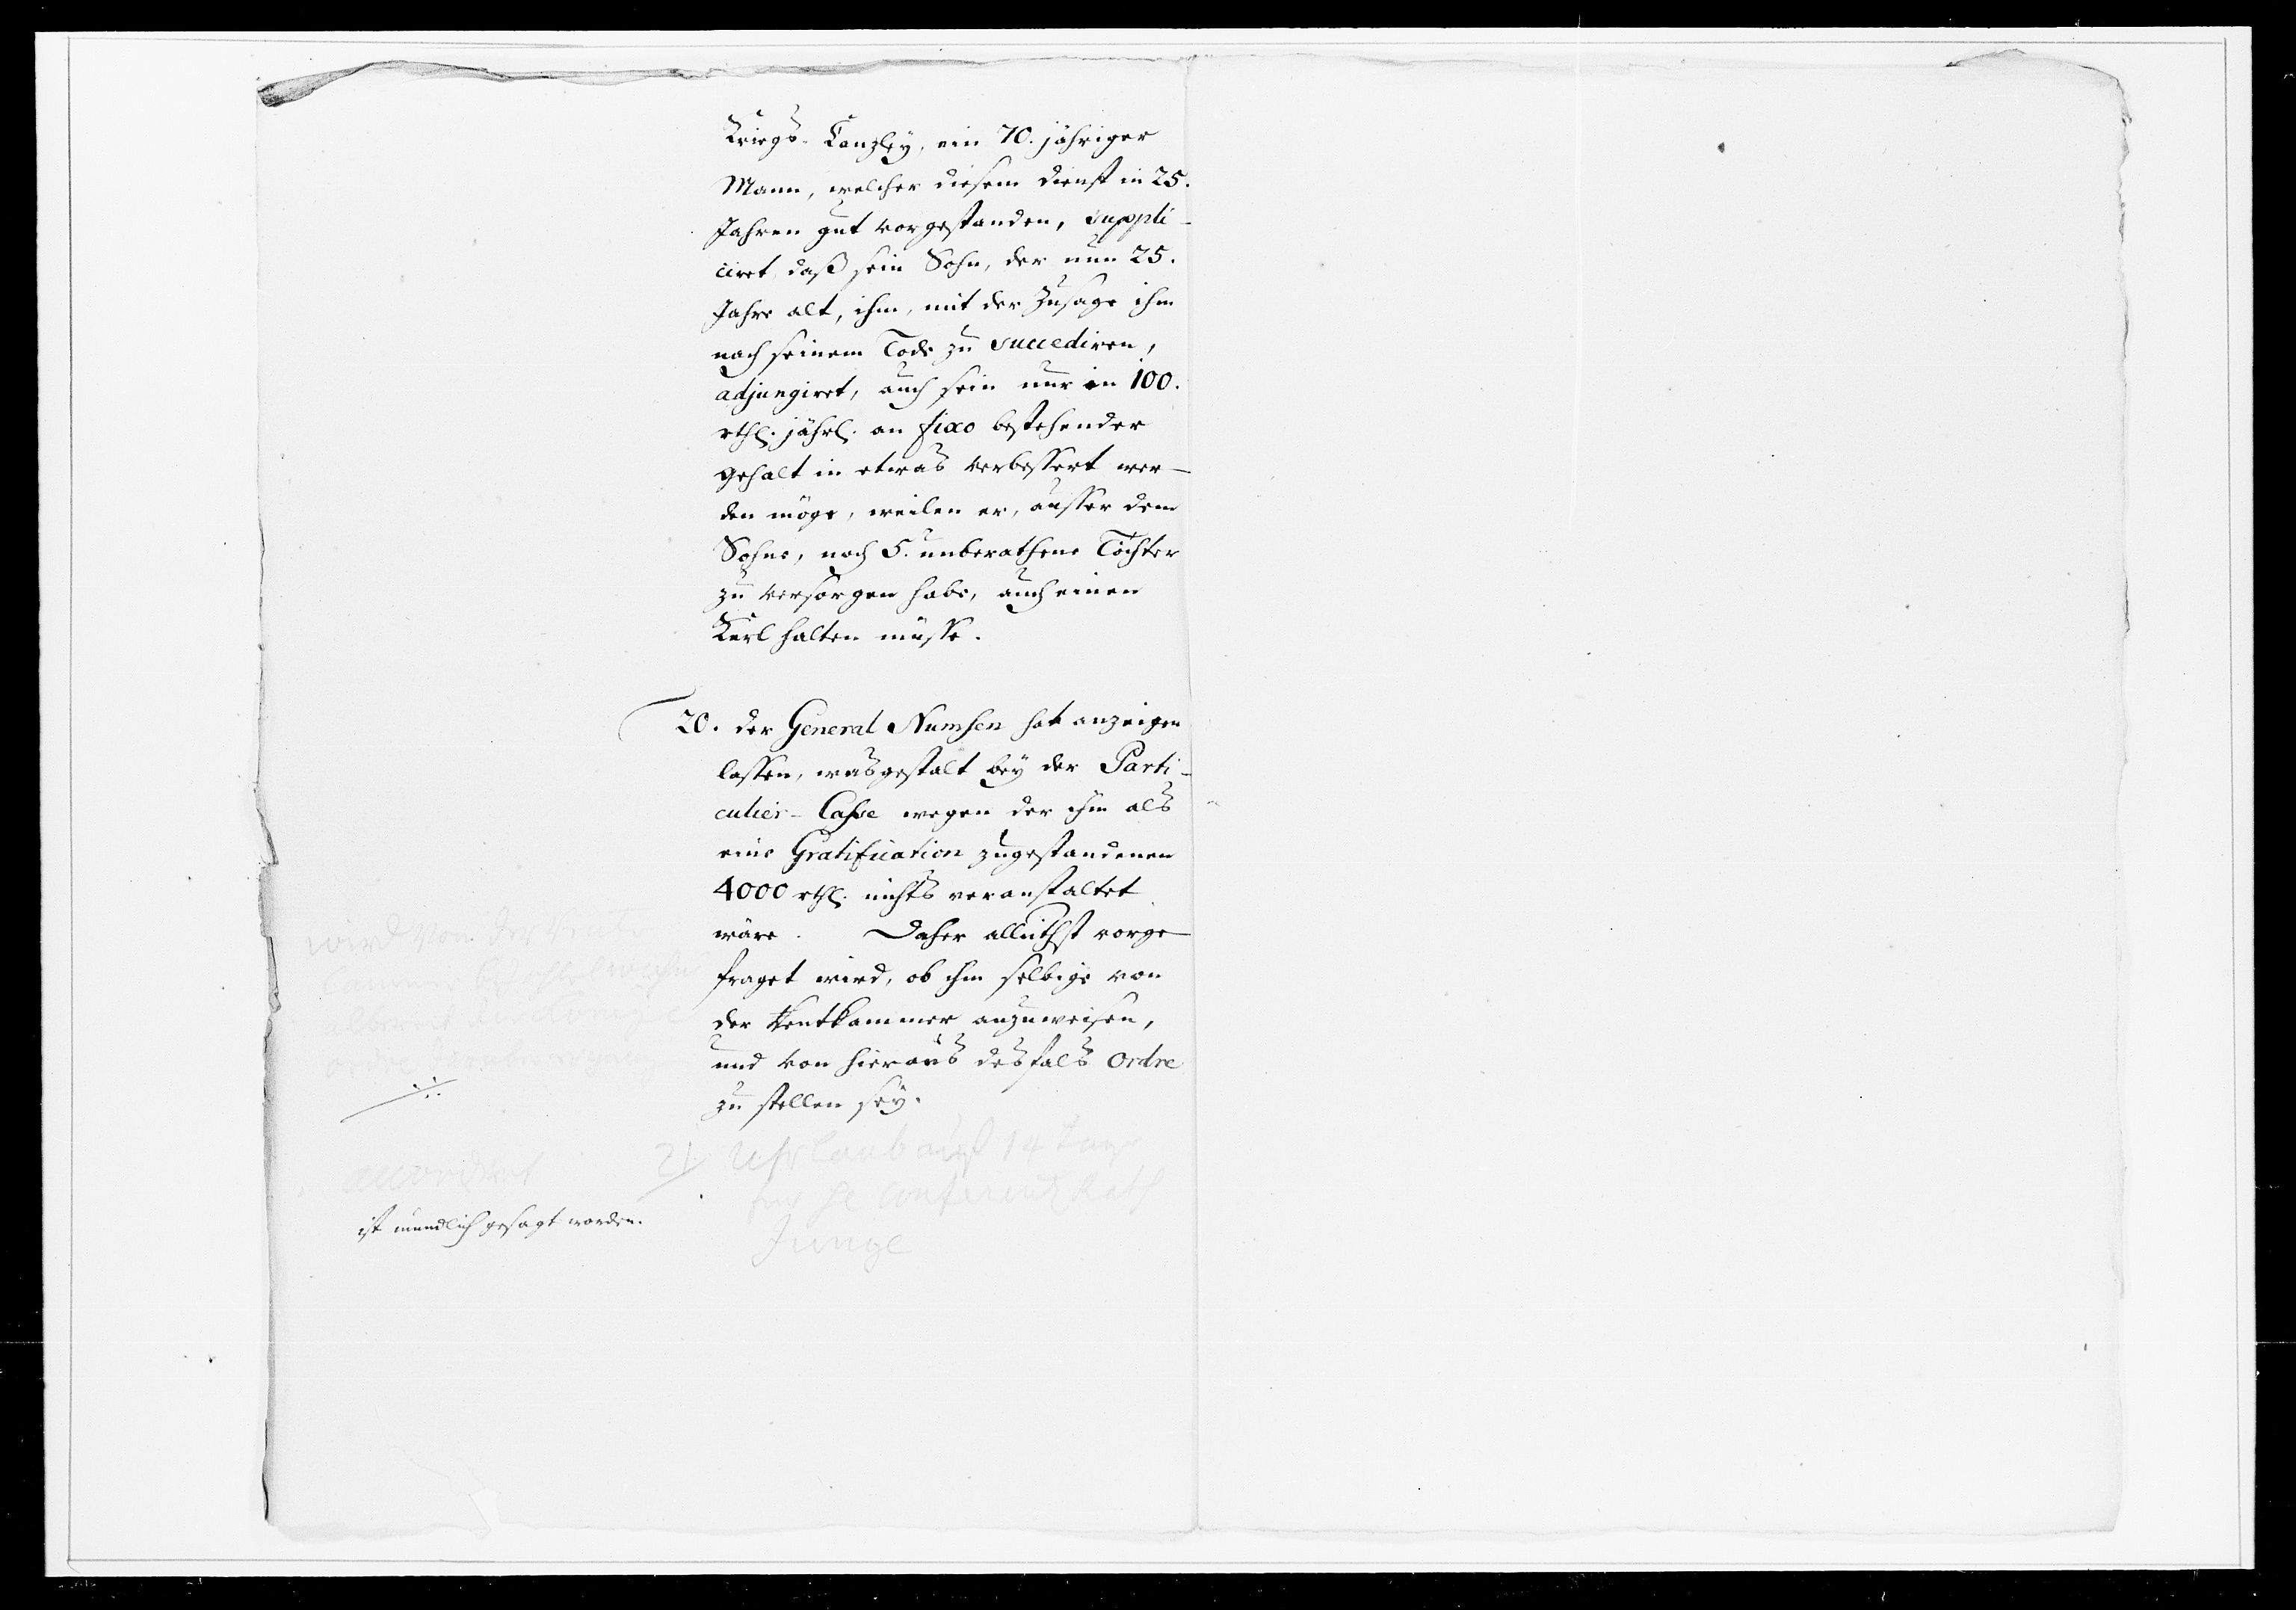 Kriegs-Canzley, ein 70. jähriger
Mann, welcher diesem Dienst in 25.
Jahren gut vorgestanden, suppli-
ciret, daß sein Sohn, der nun 25.
Jahre alt, ihm, mit der Zusage ihm
nach seinem Tode zu succediren,
adjungiret, auch sein nur in 100.
rthl. jährl. an fixo bestehender
Gehalt in etwas verbessert wer-
den möge, weilen er, ausser dem
Sohne, noch 5. unberathene Töchter
zu versorgen habe, auch einen
Kerl halten müsse.
20. Der General Numsen hat anzeigen
lassen, wasgestalt bey der Parti-
culier-Casse wegen der ihm als
eine Gratification zugestandenen
4000 rthl. nichts veranstaltet
wäre. Daher allerunthst vorge-
fraget wird, ob ihm selbige von
der Rentkammer anzuweisen,
und von hieraus desfals Ordre
zu stellen sey.
wird von der Rente
Cammer
Königl
ordre
accordirt
ist mündlich gesagt worden.
21 Uhrlaub auf 14 Tage
für H Conferentz Rath
Junge